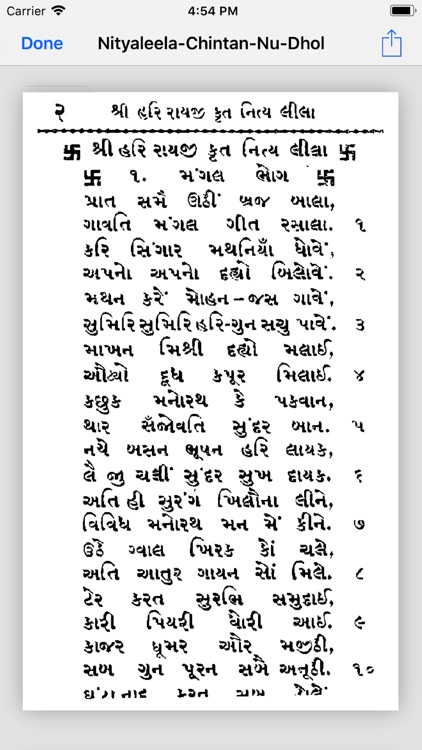 Carrier 4:54 PM
Done Nityaleela-Chintan-Nu-Dhol
૨ શ્રી હરિ રાયજી કૃત નિત્ય લીલા
卐 શ્રી હરિ રાયજી કૃત નિત્ય લીલા 卐
卐 ૧. મંગલ ભોગ 卐
પ્રાત સમૈ ઊઠીં બ્રજ બાલા,
ગાવતિ મંગલ ગીત રસાલા. ૧
કરિ સિંગાર મથનિયાઁ ધોવેં,
અપનો અપનો દહ્યો બિલોવેં. ૨
મથન કરેં મોહન-જસ ગાવેં,
સુમિરિ સુમિરિ હરિ-ગુન સચુ પાવેં. ૩
માખન મિશ્રી દહ્યો મલાઈ,
ઔટ્યો દૂધ કપૂર મિલાઈ. ૪
કછુક મનોરથ કે પકવાન,
થાર સઁજોવતિ સુંદર બાન. ૫
નયે બસન ભૂષન હરિ લાયક,
લૈ જુ ચલીં સુંદર સુખ દાયક. ૬
અતિ હી સુરંગ ખિલૌના લીને,
વિવિધ મનોરથ મન મેં કીને. ૭
ઉઠે ગ્વાલ ખિરક કોં ચલે,
અતિ આતુર ગાયન સોં મિલે. ૮
ટેર કરત સુરભિ સમુદાઈ,
કારી પિયરી ધોરી આઈ. ૯
કાજર ધૂમર ઔર મજીઠી,
સબ ગુન પૂરન સબૈ અનૂઠી. ૧૦